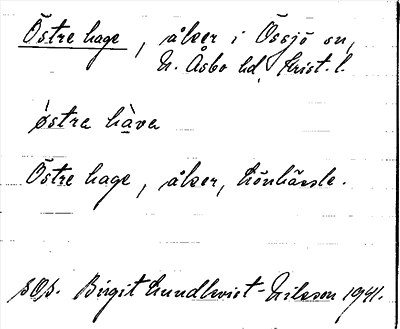 Östre hage, åker i Össjö sn,
N. Åsbo hd, Krist. l.
østrə hàvə
Östre hage, åker, Lönhässle.
SOS. Birgit Lundkvist-Nilsson 1941.